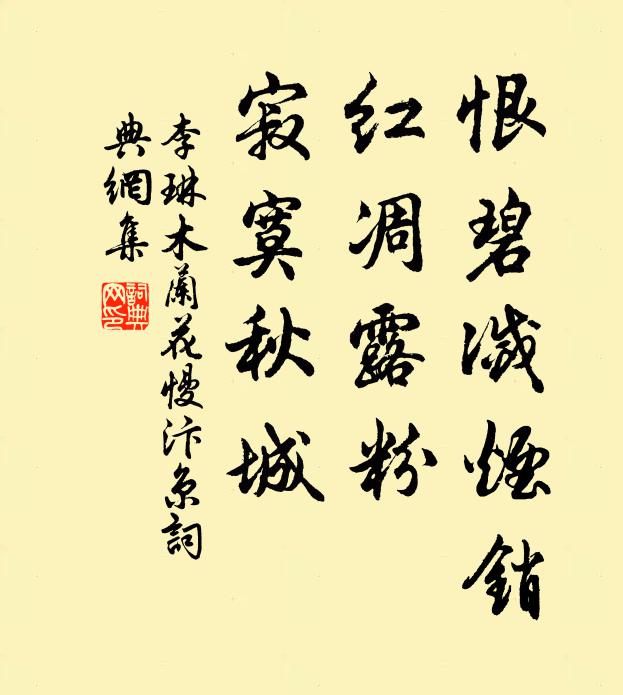 恨碧減煙銷
紅凋露粉
寂寞秋城
李琳木蘭花慢汴京詞
典網集
詞典
网印